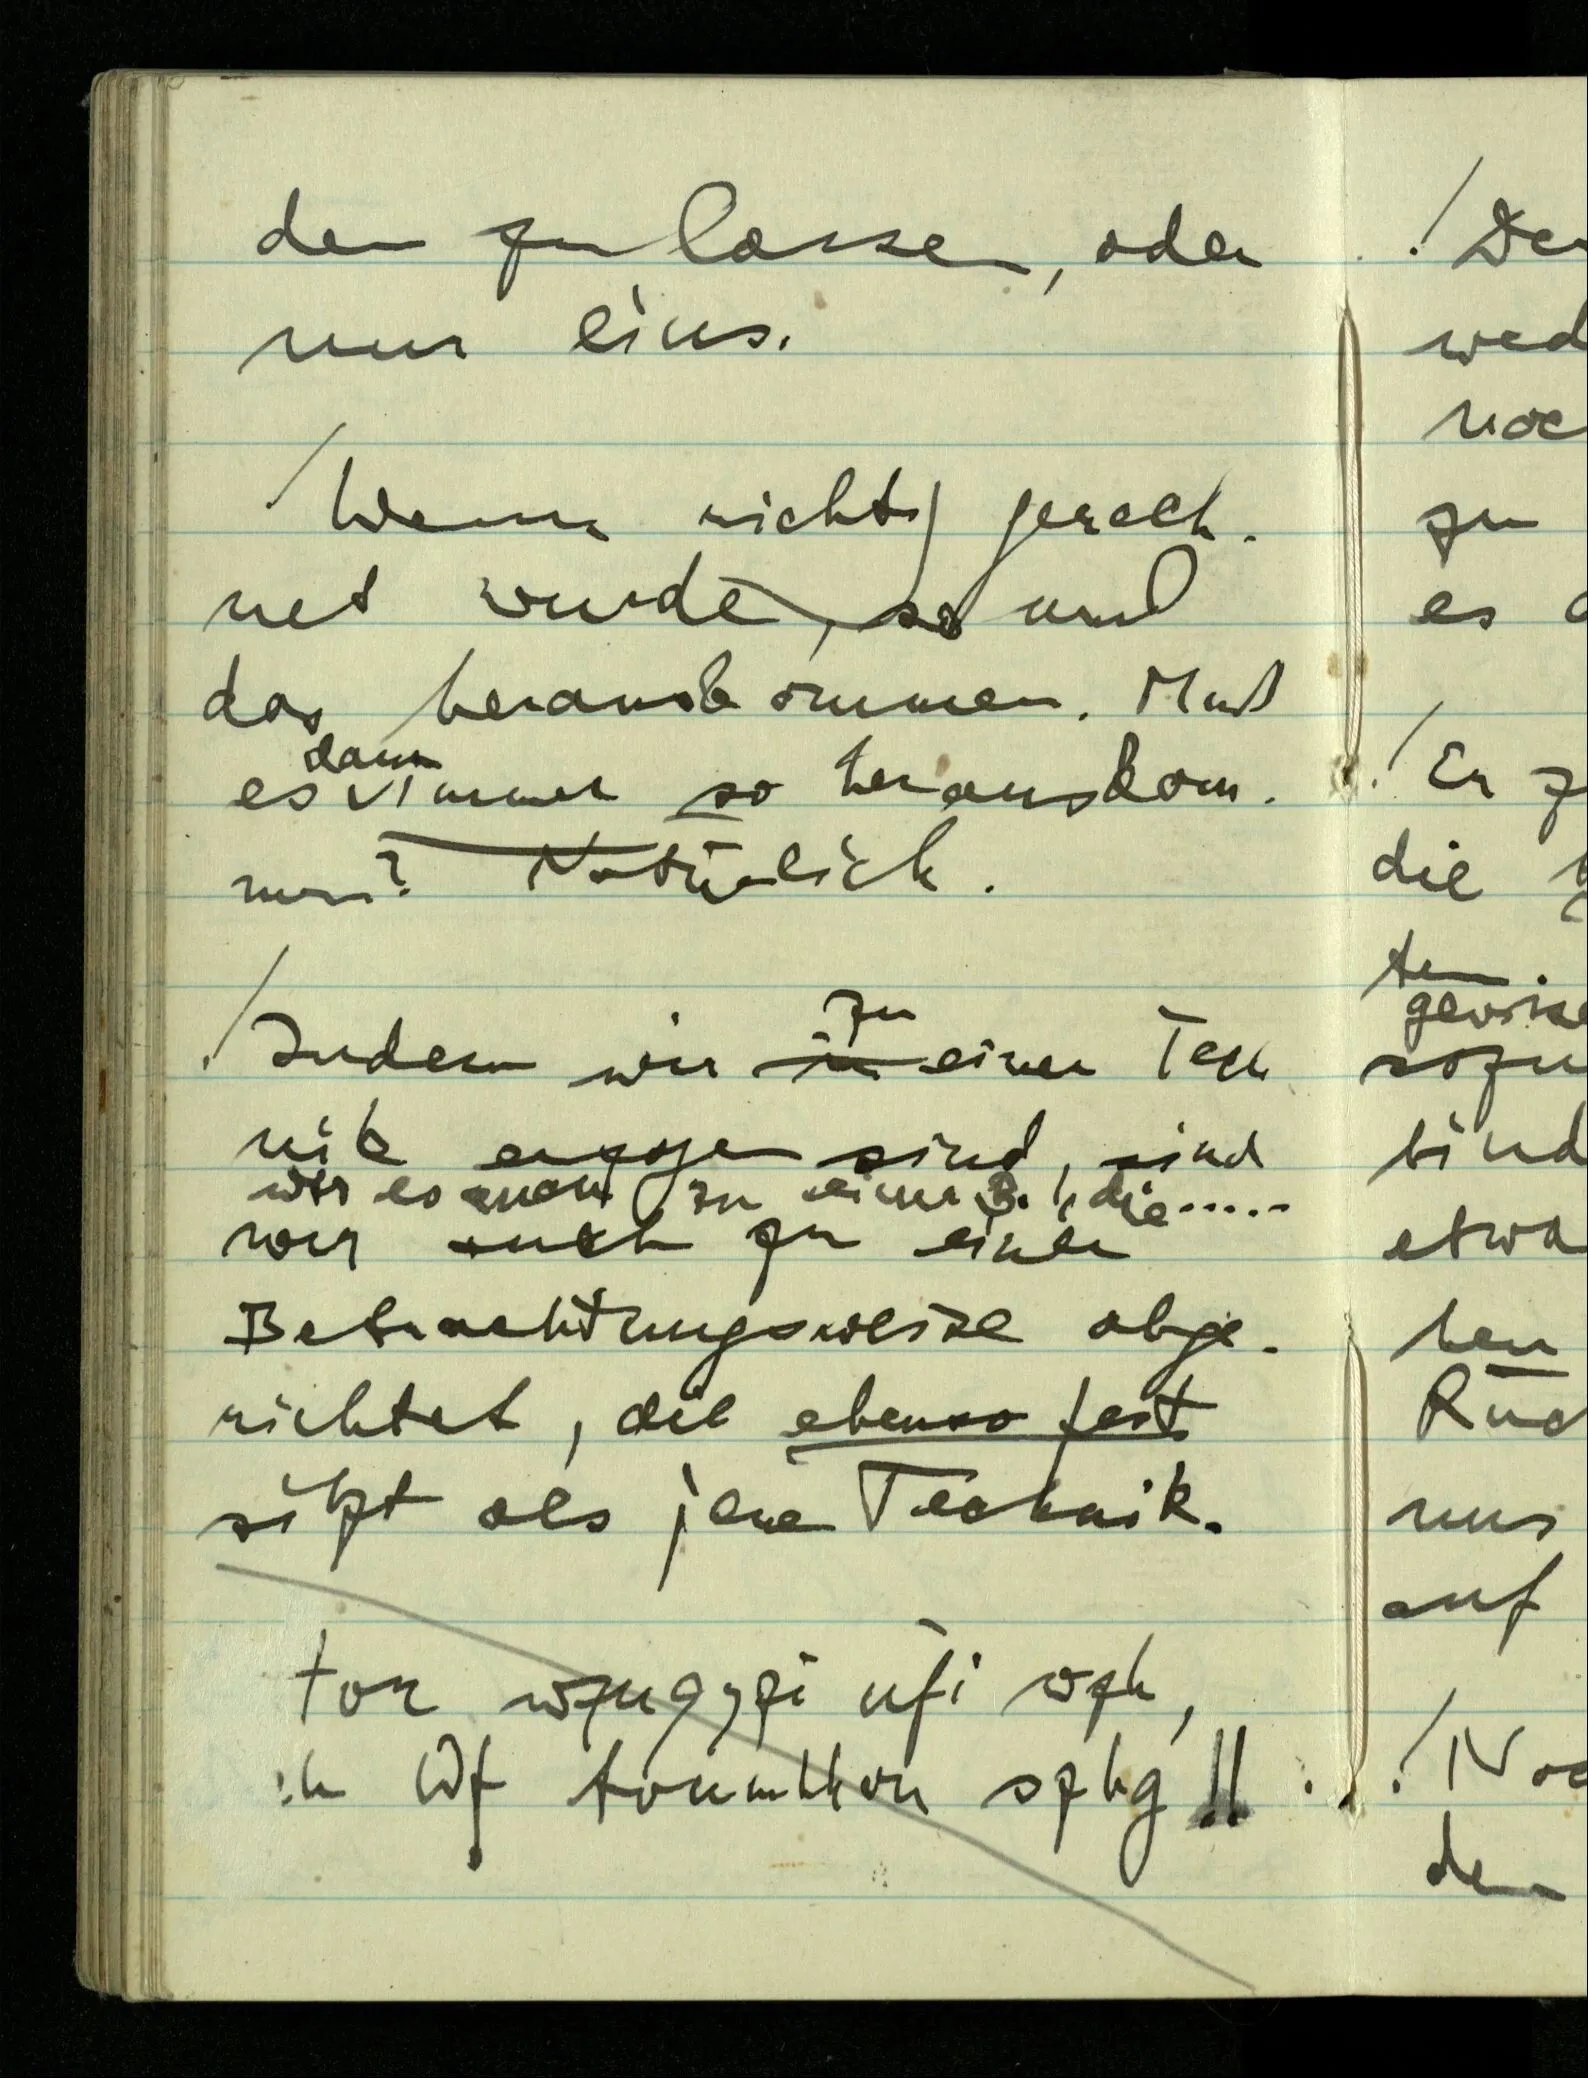 den zu lassen, oder
nur eins.
/ Wenn richtig gerech-
net wurde, so muß
das herauskommen. Muß
es dann immer so herauskom-
men? Natürlich.
/ Indem wir in zu einer Tech
nik erzogen sind, sind
wir es auch zu einer B., die.....
wir auch zu einer
Betrachtungsweise abge-
richtet, die ebenso fest
sitzt als jene Technik.
ufi
Wf
/ Der
wed
noc
zu
es
/ Er z
die
ten.
gewisse
sozu
bind
etwa
hen
Rüc
nur
auf
/ Noc
den